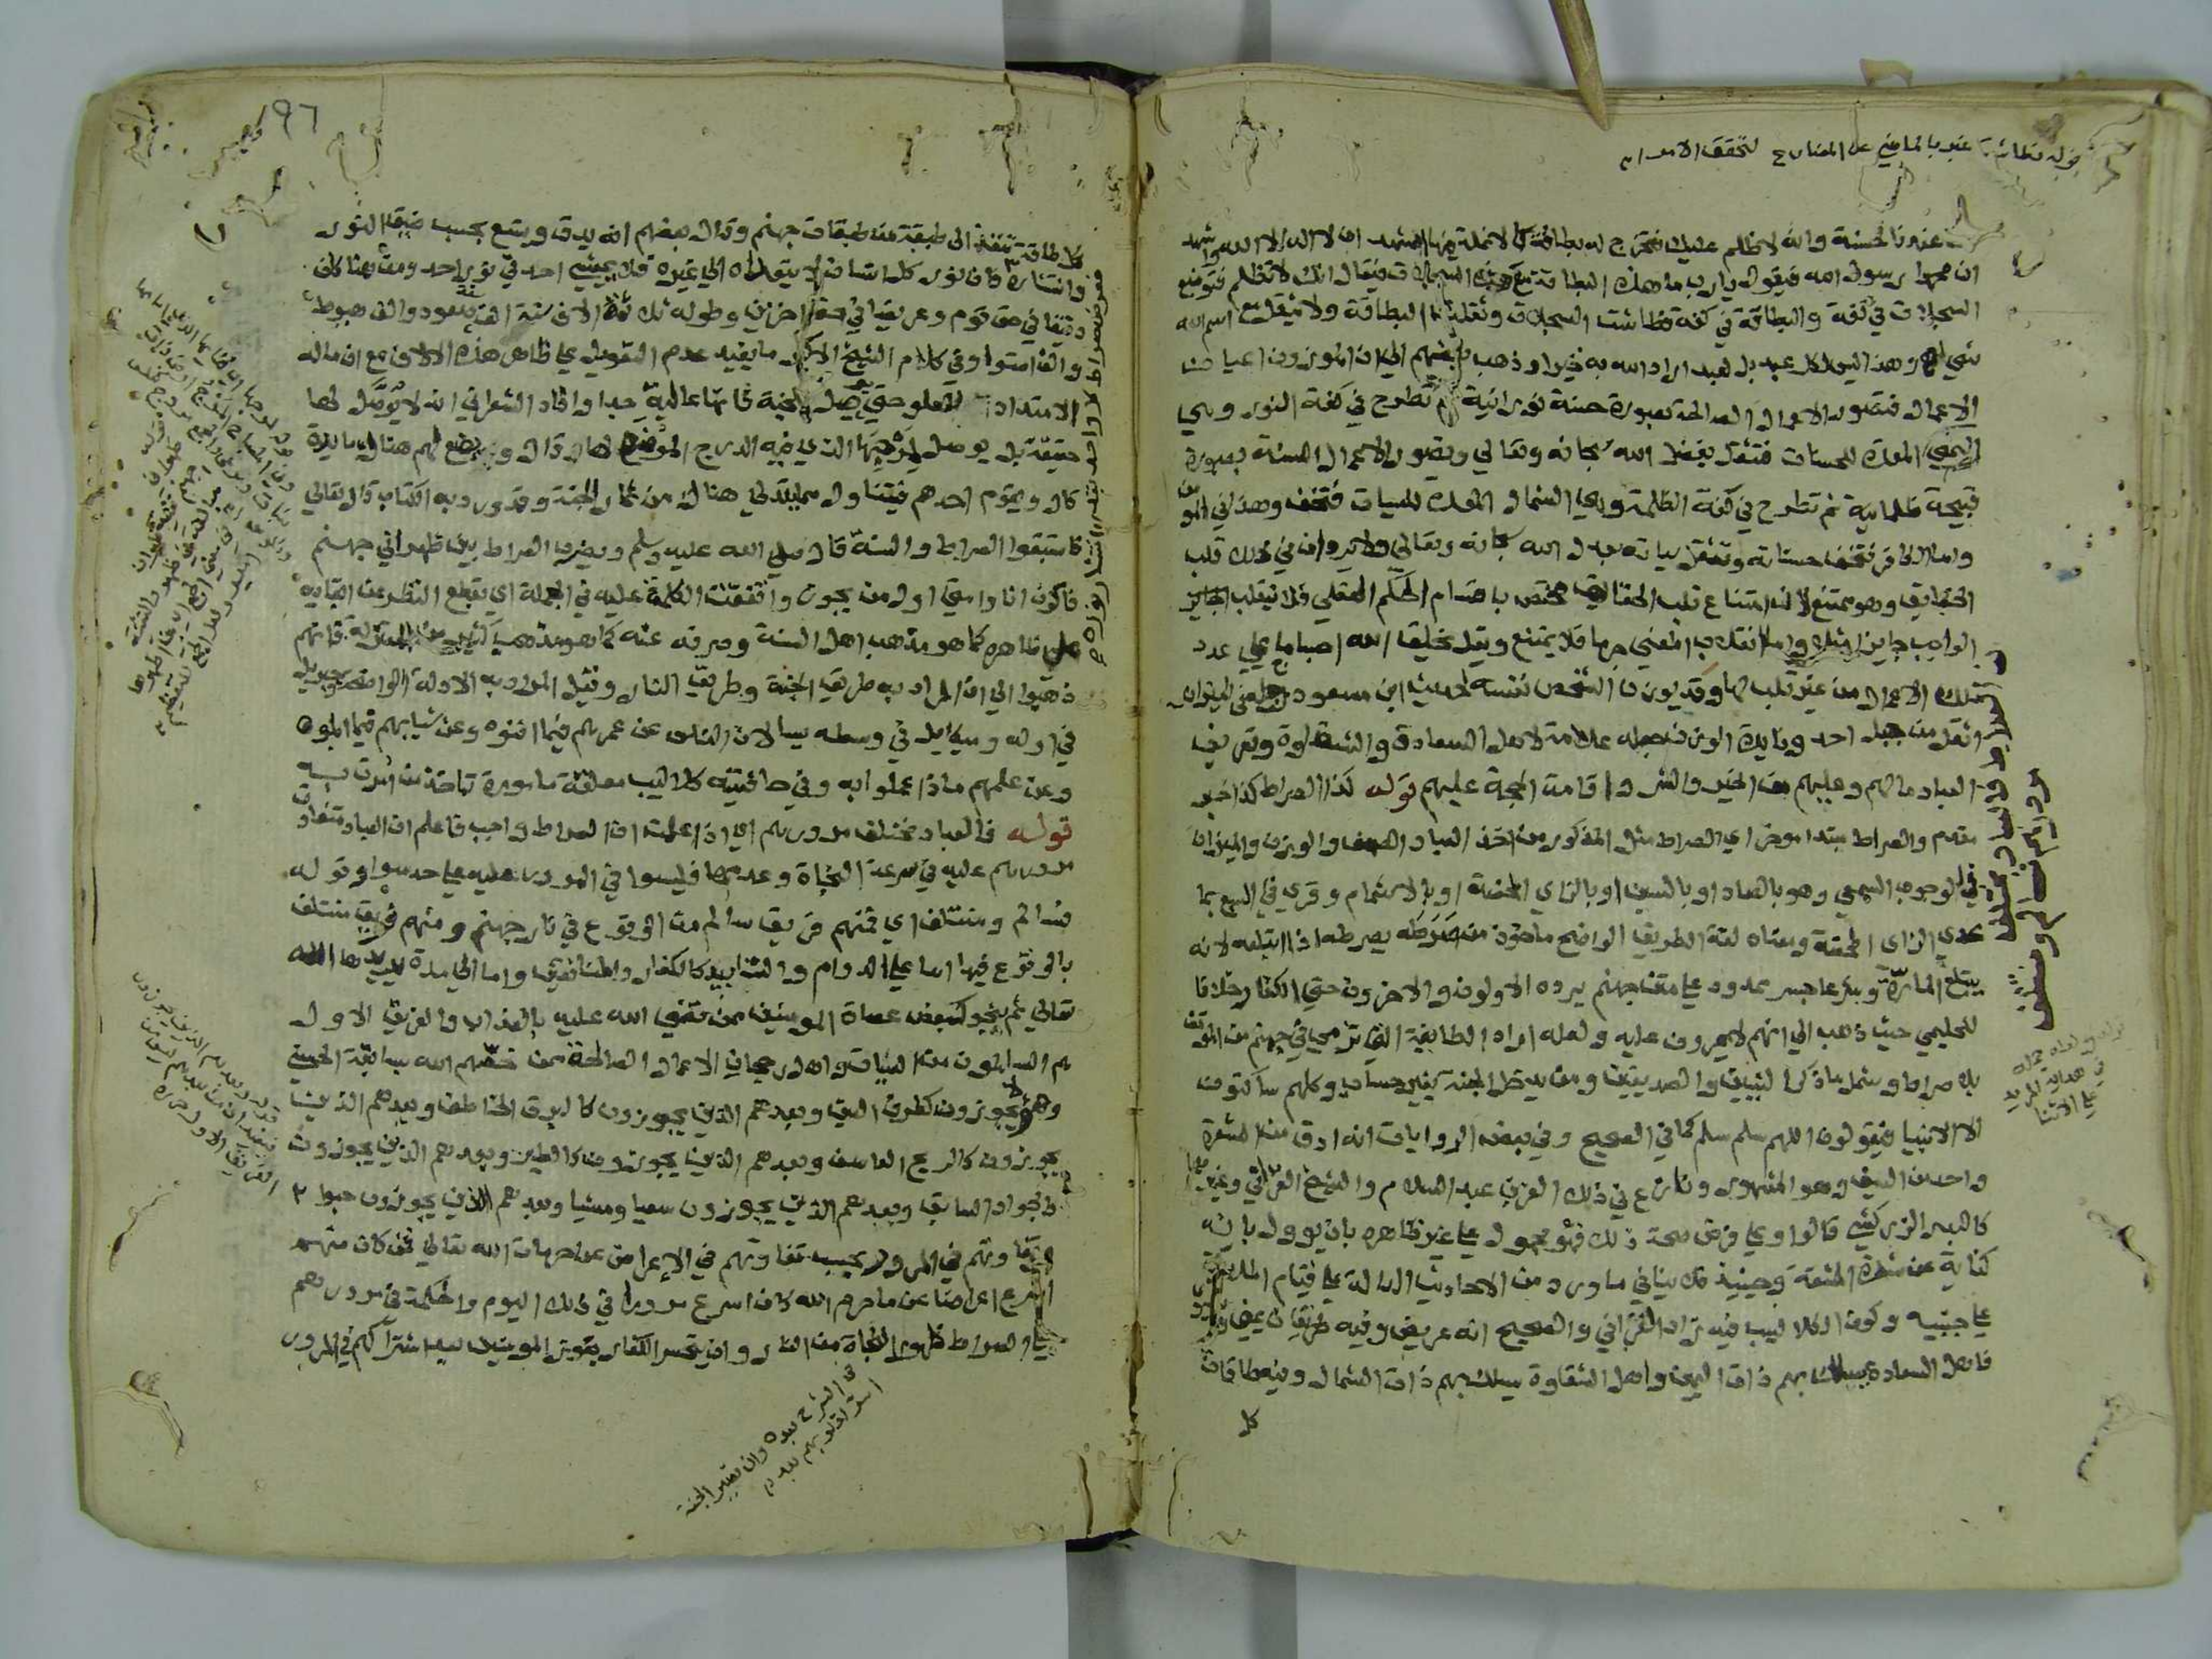 قوله فطاشت عبر بالماضي عن المضارع لتحقق الامر اه
عندنا لحسنة وانه لا ظلم عليك فتخرج له بطاقة كالانملة فيها اشهد ان لا اله الا الله واشهد
ان محمدا رسول الله فيقول يارب ما هذه البطاقة مع هذه السجلات فيقال انك لا تظلم فتوضع
السجلات في كفة والبطاقة في كفة فطاشت السجلات وثقلت البطاقة ولا يثقل مع اسم الله
شي وهذا ليس لكل عبد بل لعبد اراد الله به خيرا وذهب بعضهم الى ان الموزون اعيان
الاعمال فتصور الاعمال الصالحة بصورة حسنة نورانية ثم تطرح في كفة النور وهي
اليمنى المعدة للحسنات فتثقل بفضل الله سبحانه وتعالى وتصور الاعمال السيئة بصورة
قبيحة ظلمانية ثم تطرح في كفة الظلمة وهي الشمال المعدة للسيات فتخف وهذا في المومن
واما الكافر فتخف حسناته وتثقل سياته بعدل الله سبحانه وتعالى ولا يرد ان في ذلك قلب
الحقايق وهو ممتنع لان امتناع قلب الحقايق مختص باقسام الحكم العقلي فلا ينقلب الجايز
الواجب جايزا مثلا واما انقلاب المعنى جرما فلا يمتنع وقيل يخلق الله اجساما على عدد
تلك الاعمال من غير قلب لها وقد يوزن الشخص نفسه لحديث ابن مسعود رجله في الميزان
اثقل من جبل احد وفايدة الوزن جعله علامة لاهل السعادة والشقاوة وتعريف
العباد مالهم وعليهم من الخير والشر واقامة الحجة عليهم قوله كذا الصراط كذا خبر
مقدم والصراط مبتدا موخر اي الصراط مثل المذكور من اخذ العباد الصحف والوزن والميزان
في الوجوب السمعي وهو بالصاد او بالسين او بالزاي المحضة او بالاشمام وقري في السبع بما
عدي الزاي المحضة ومعناه لغة الطريق الواضح ماخوذ من صرطه يصرطه اذا ابتلعه لانه
يبتلع المارة وشرعا جسر ممدود على متن جهنم يرده الاولون والاخرون حتى الكفار خلافا
للحليمي حيث ذهب الى انهم لا يمرون عليه ولعله اراد الطايفة التي ترمى في جهنم من الموقف
بلا صراط وشمل ما ذكر النبيين والصديقين ومن يدخل الجنة بغير حساب وكلهم ساكتون
الا الانبيا فيقولون اللهم سلم سلم كما في الصحيح وفي بعض الروايات انه ادق من الشعرة
واحد من السيف وهو المشهور ونازع في ذلك العز بن عبد السلام والشيخ القرافي وغيرهما
كالبدر الزركشي قالوا وعلى فرض صحة ذلك فهو محمول على غير ظاهره بان يوول بانه
كناية عن شدة المشقة وحينيذ فلا ينافي ما ورد من الاحاديث الدالة على قيام الملايكة
على جنبيه وكون الكلاليب فيه زاد القرافي والصحيح انه عريض وفيه طريقان يمنى ويسرى
فاهل السعادة يسلك بهم ذات اليمين واهل الشقاوة يسلك بهم ذات الشمال وفيه طاقات
كل
فالصراط والعباد مختلف
مرورهم فسالم ومنتلف
٩٦
كل طاقة تنفذ الى طبقة من طبقات جهنم وقال بعضهم انه يدق ويتسع بحسب ضيق النور
وانتشاره فان نور كل انسان لا يتعداه الى غيره فلا يمشي احد في نور احد ومن هنا كان
دقيقا في حق قوم وعريضا في حق اخرين وطوله ثلاثة الاف سنة الف صعود والف هبوط
والف استوا وفي كلام الشيخ الاكبر ما يفيد عدم التعويل على ظاهر هذه الالاف مع ان ماله
الامتداد للعلو حتى يصل للجنة فانها عالية جدا وافاد الشعراني انه لا يوصل لها
حقيقة بل يوصل لمرجها الذي فيه الدرج الموصل لها قال ويوضع لهم هناك مايدة
قال ويقوم احدهم فيتناول مما تدلى هناك من ثمار الجنة وقد ورد به الكتاب قال تعالى
فاستبقوا الصراط والسنة قال صلى الله عليه وسلم ويضرب الصراط بين ظهراني جهنم
فاكون انا وامتي اول من يجوز واتفقت الكلمة عليه في الجملة اي بقطع النظر عن ابقايه
على ظاهره كما هو مذهب اهل السنة وصرفه عنه كما هو مذهب كثير من المعتزلة فانهم
ذهبوا الى ان المراد به طريق الجنة وطريق النار وقيل المراد به الادلة الواضحة وجبريل
في اوله وميكايل في وسطه يسالان الناس عن عمرهم فيما افنوه وعن شبابهم فيما ابلوه
وعن علمهم ماذا عملوا به وفي حافتيه كلاليب معلقة مامورة تاخذ من امرت به
قوله فالعباد مختلف مرورهم اي اذا علمت ان الصراط واجب فاعلم ان العباد متفاوت
مرورهم عليه في سرعة النجاة وعدمها فليسوا في المرور عليه على حد سوا وقوله
فسالم ومنتلف اي فمنهم فريق سالم من الوقوع في نار جهنم ومنهم فريق منتلف
بالوقوع فيها اما على الدوام والتابيد كالكفار والمنافقين واما الى مدة يريدها الله
تعالى ثم ينجو كبعض عصاة المومنين ممن قضى الله عليه بالعذاب والفريق الاول
هم السالمون من السيات واهل رجحان الاعمال الصالحة ممن خصهم الله بسابقة الحسنى
وهو يجوزون كطرف العين وبعدهم الذين يجوزون كالبرق الخاطف وبعدهم الذين
يجوزون كالريح العاصف وبعدهم الذين يجوزون كالطير وبعدهم الذين يجوزون
كالجواد السابق وبعدهم الذين يجوزون سعيا ومشيا وبعدهم الذين يجوزون حبوا
وتفاوتهم في المرور بحسب تفاوتهم في الاعراض عن حرمات الله تعالى فمن كان منهم
اسرع اعراضا عن ما حرم الله كان اسرع مرورا في ذلك اليوم والحكمة في مرورهم
على الصراط ظهور النجاة من النار وان يتحسر الكفار بفوز المومنين بعد اشتراكهم في المرور